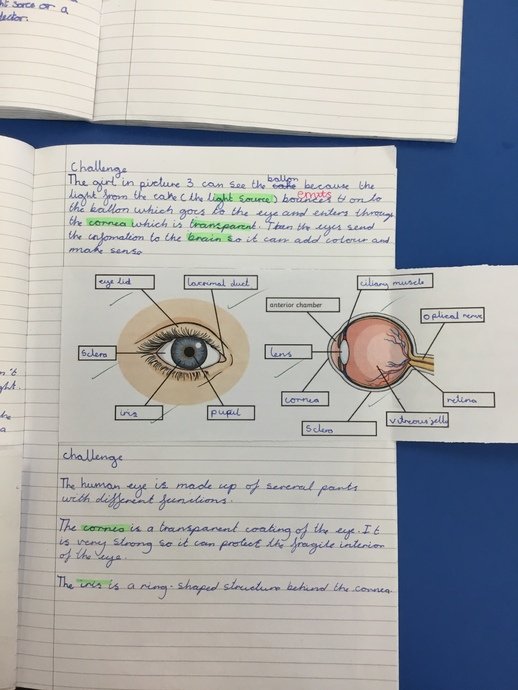 ht sorce or a
lector.
Challenge
The girl in picture 3 can see the cake ballon because the
light from the cake (the light source) bounces emits on to
the ballon which goes to the eye and enters through
the cornea which is transparent. Then the eyes send
the infomation to the brain so it can add colour and
make sense
eye lid
lacrimal duct
ciliary muscle
anterior chamber
optical nerve
Sclera
lens
iris
pupil
cornea
retina
Sclera
vitreous jelly
n't
ght.
he
a
Challenge
The human eye is made up of several parts
with different functions.
The cornea is a transparent coating of the eye. It
is very strong so it can protect the fragile interior
of the eye.
The iris is a ring-shaped structure behind the cornea